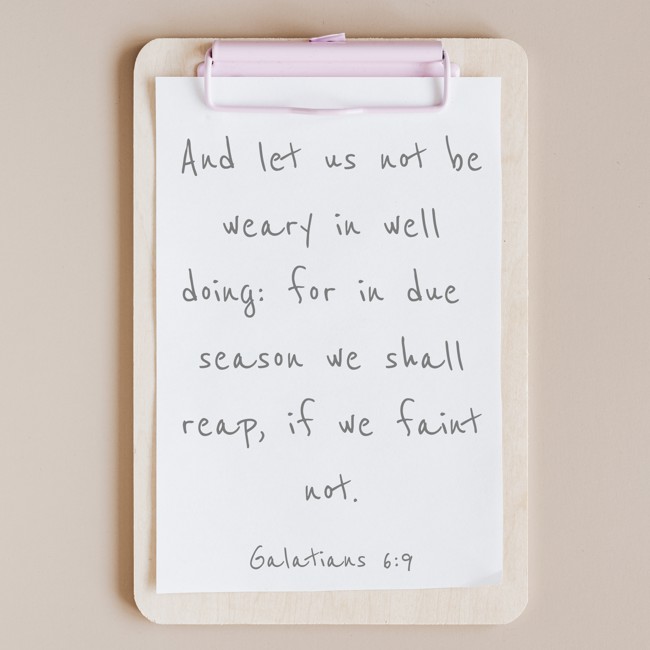 And let us not be
weary in well
doing: for in due
season we shall
reap, if we faint
not.
Galatians 6:9